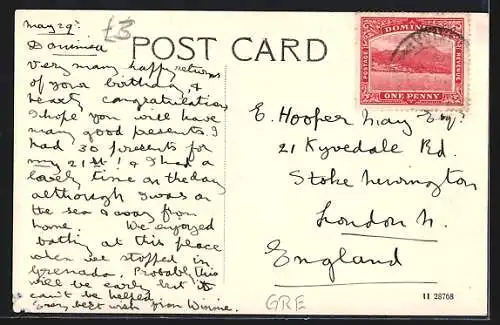 May 29th
£3
Dominica
POST CARD
DOMINICA
POSTAGE
REVENUE
ONE PENNY
Very many happy returns
of your birthday, &
hearty congratulations
I hope you will have
many good presents. I
had 30 presents for
my 21st! & I had a
lovely time on the day
although I was on
the sea & away from
home. We enjoyed
bathing at this place
when we stopped in
Grenada. Probably this
will be early but it
can't be helped.
Every best wish from Winnie.
E. Hooper May Esq:
21 Kyverdale Rd.
Stoke Newington
London N.
England
GRE
11 28768